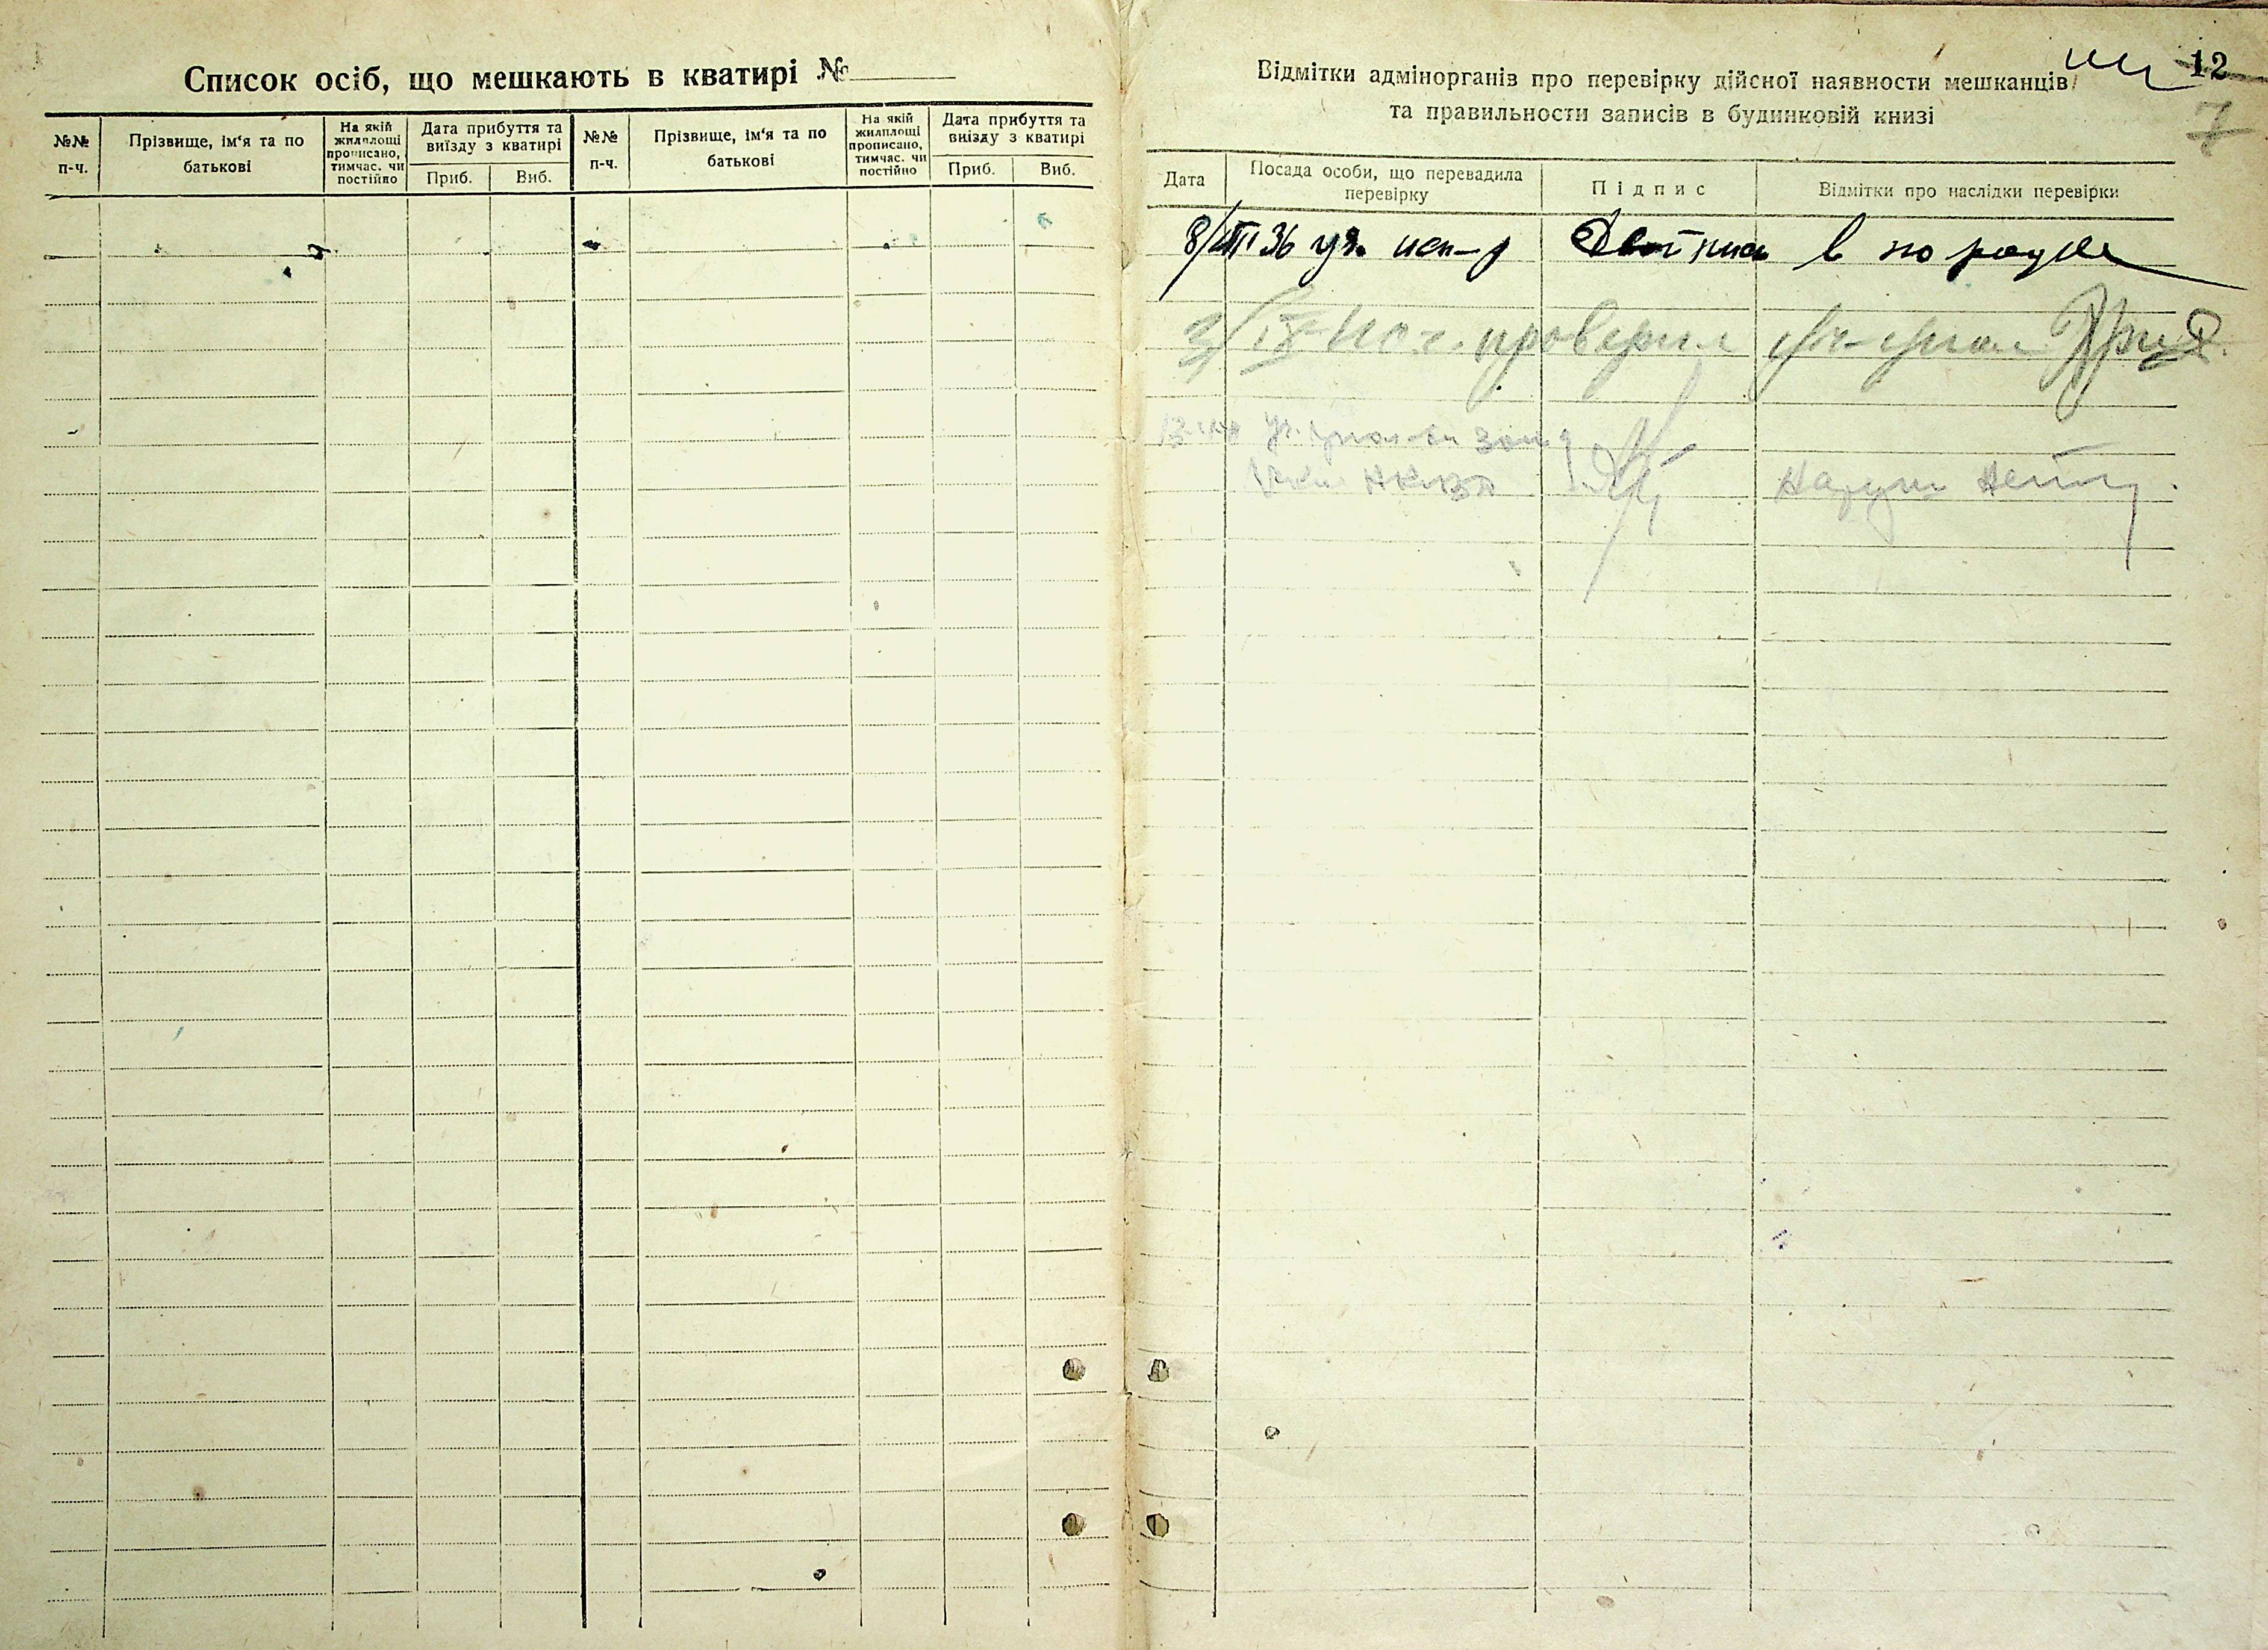 Список осіб, що мешкають в кватирі №
№№ п-ч.
Прізвище, ім'я та по батькові
На якій жилплощі прописано, тимчас. чи постійно
Дата прибуття та виїзду з кватирі
Приб.
Виб.
№№ п-ч.
Прізвище, ім'я та по батькові
На якій жилплощі прописано, тимчас. чи постійно
Дата прибуття та виїзду з кватирі
Приб.
Виб.
12
7
Відмітки адмінорганів про перевірку дійсної наявности мешканців
та правильности записів в будинковій книзі
Дата
Посада особи, що перевадила перевірку
Підпис
Відмітки про наслідки перевірки
36 уч. в порядке
проверил
Наруш нету.